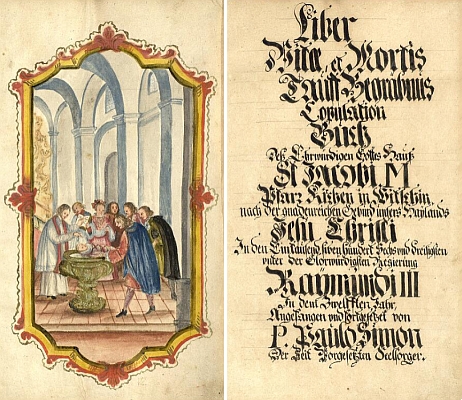 Liber
Vitæ, et Mortis
Tauff
Copulation
Buch
Deß Ehrwürdigen Gottes Hauß
St Jacobi M
Pfarr Kirchen in
nach der gnadenreichen Geburd unsers Haylands
Jesu Christi
In den Eintausend siben hundert Sechs und dreißigsten
unter der Glorwürdigsten Regierung
Raymundi III
In dem Zwelfften Jahr,
Angefangen und fortgesetzet von
P. Paulo Simon
Der Zeit Vorgesetzten Seelsorger.